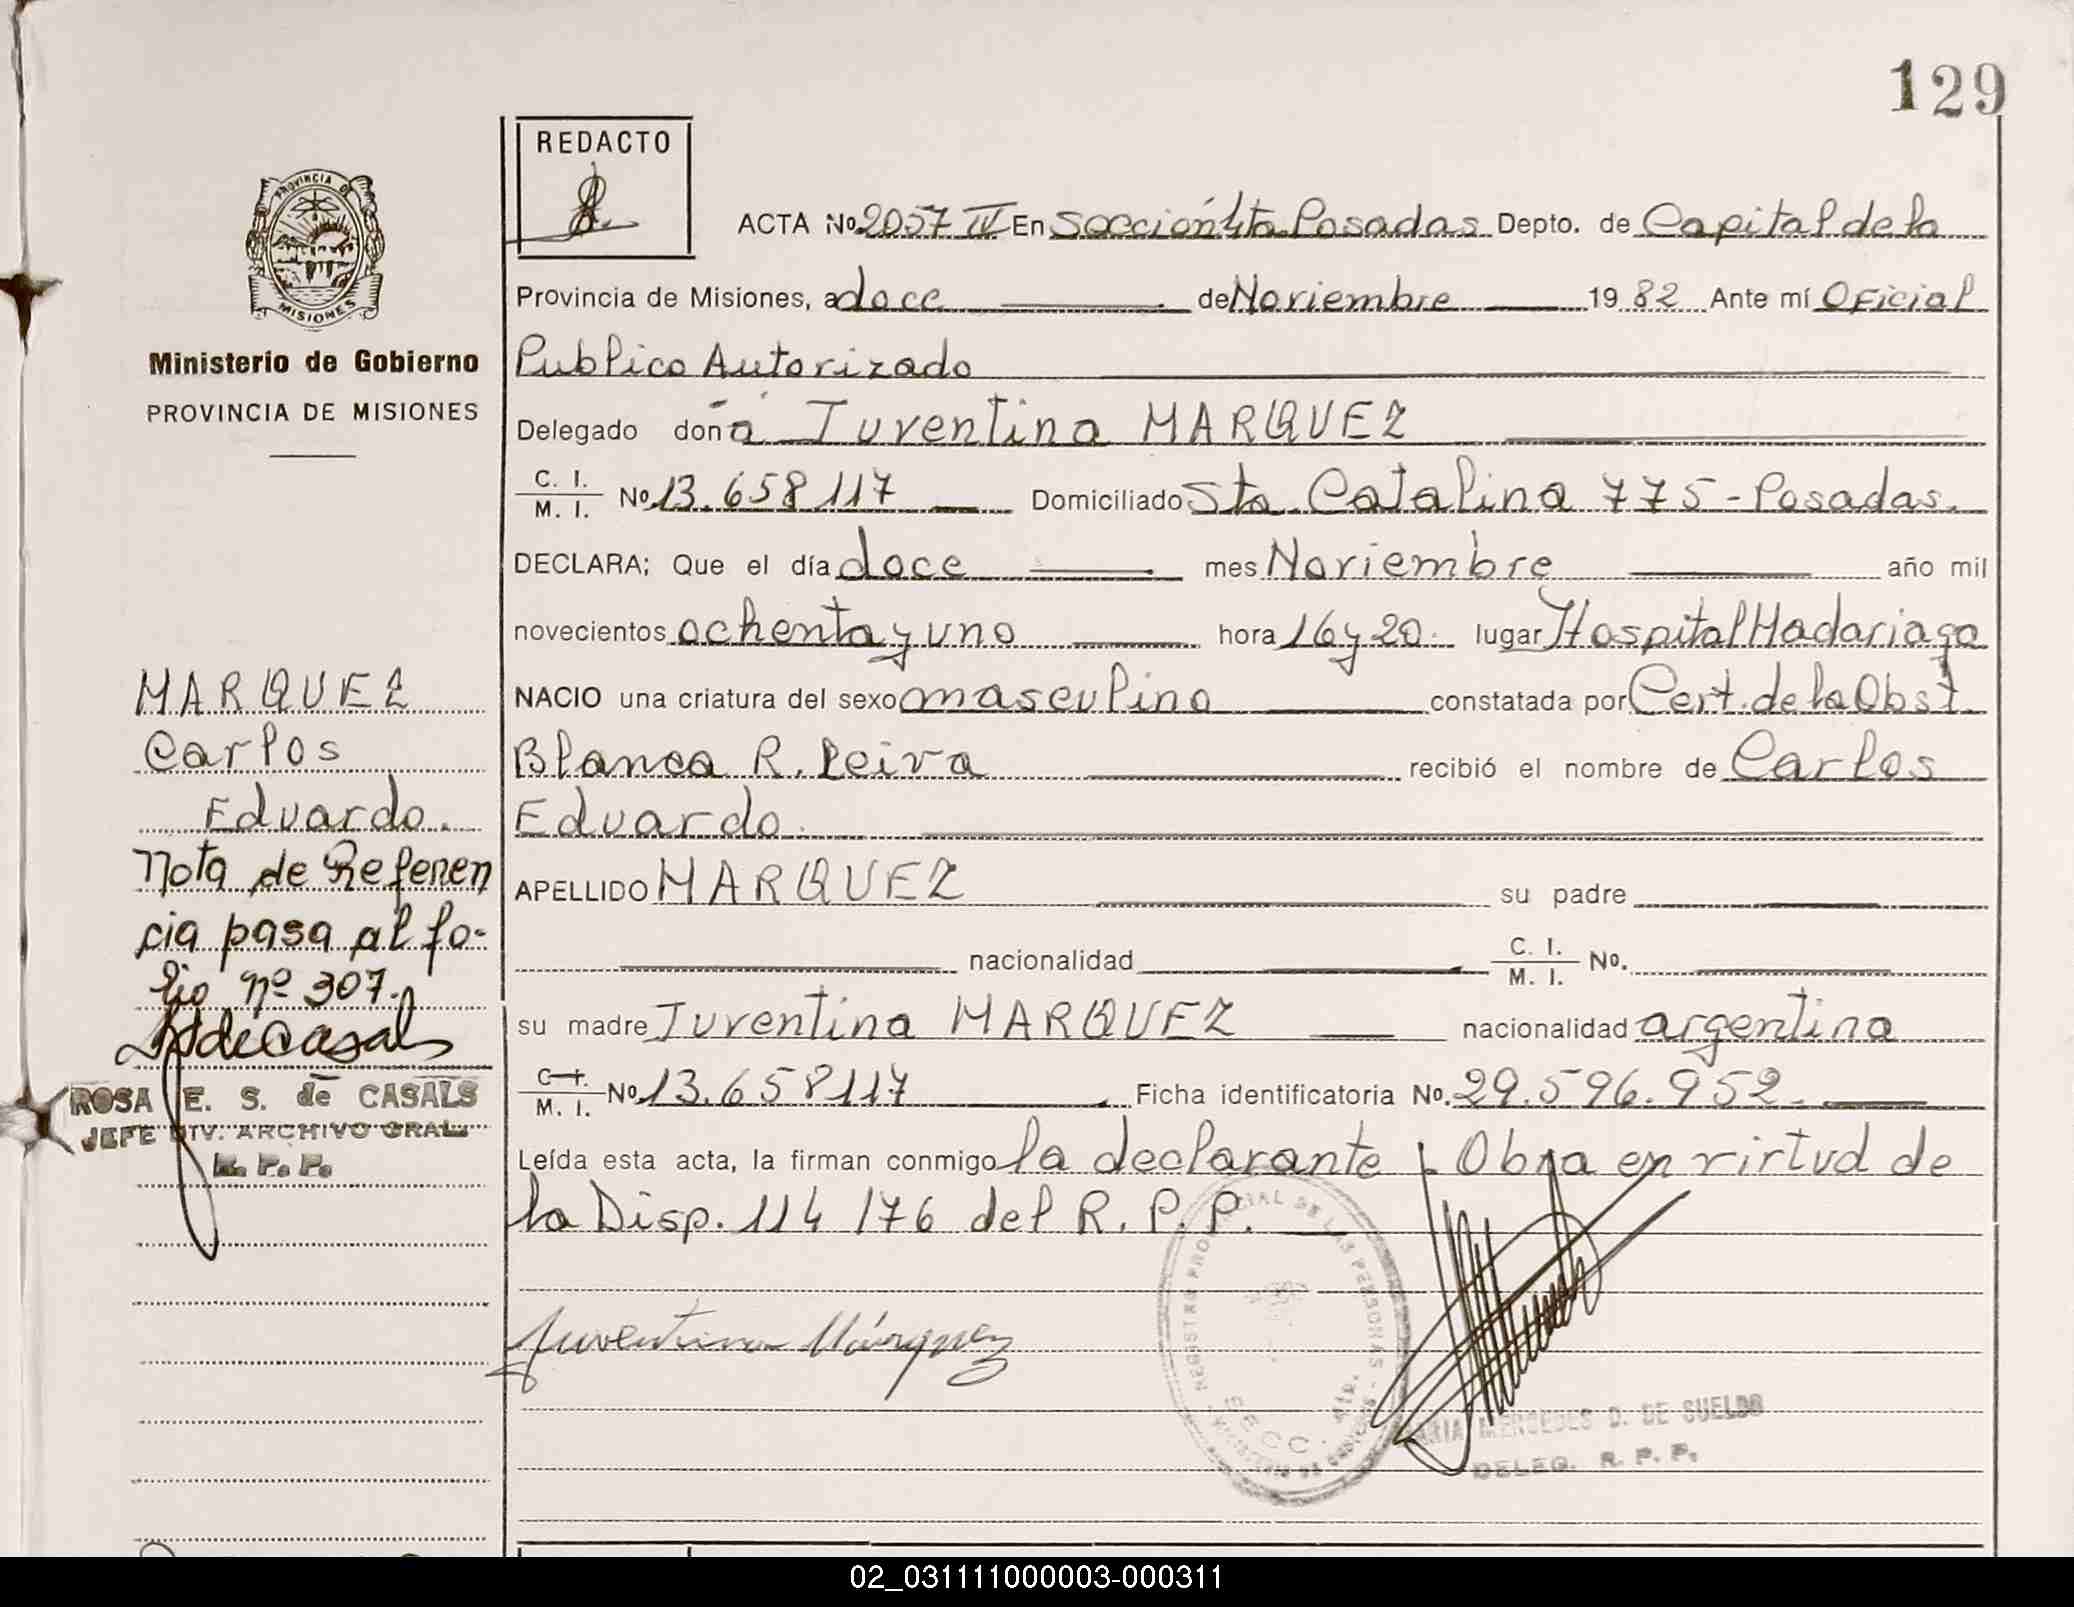 129
REDACTO
ACTA Nº 2057 IV En Sección 4ta Posadas Depto. de Capital de la
Provincia de Misiones, a doce de Noviembre 1982 Ante mí Oficial
Publico Autorizado
Delegado doña Juventina MARQUEZ
C. I. / M. I. Nº 13.658117 Domiciliado Sta. Catalina 775 - Posadas.
DECLARA; Que el día doce mes Noviembre año mil
novecientos ochenta y uno hora 16 y 20. lugar Hospital Madariaga
NACIO una criatura del sexo masculino constatada por Cert. de la Obst.
Blanca R. Leiva recibió el nombre de Carlos
Eduardo.
APELLIDO MARQUEZ su padre
nacionalidad C. I. / M. I. Nº.
su madre Juventina MARQUEZ nacionalidad argentina
C. I. / M. I. Nº 13.658117 Ficha identificatoria Nº. 29.596.952.
Leída esta acta, la firman conmigo la declarante. Obra en virtud de
la Disp. 114/76 del R. P. P.
Juventina Márquez
REGISTRO PROVINCIAL DE LAS PERSONAS
SECC.
MARIA MERCEDES D. DE SUELDO
DELEG. R. P. P.
PROVINCIA DE
MISIONES
Ministerio de Gobierno
PROVINCIA DE MISIONES
MARQUEZ
Carlos
Eduardo.
Nota de Referen
cia pasa al fo-
lio nº 307.
ROSA E. S. de CASALS
JEFE DIV. ARCHIVO GRAL.
R. P. P.
02_031111000003-000311